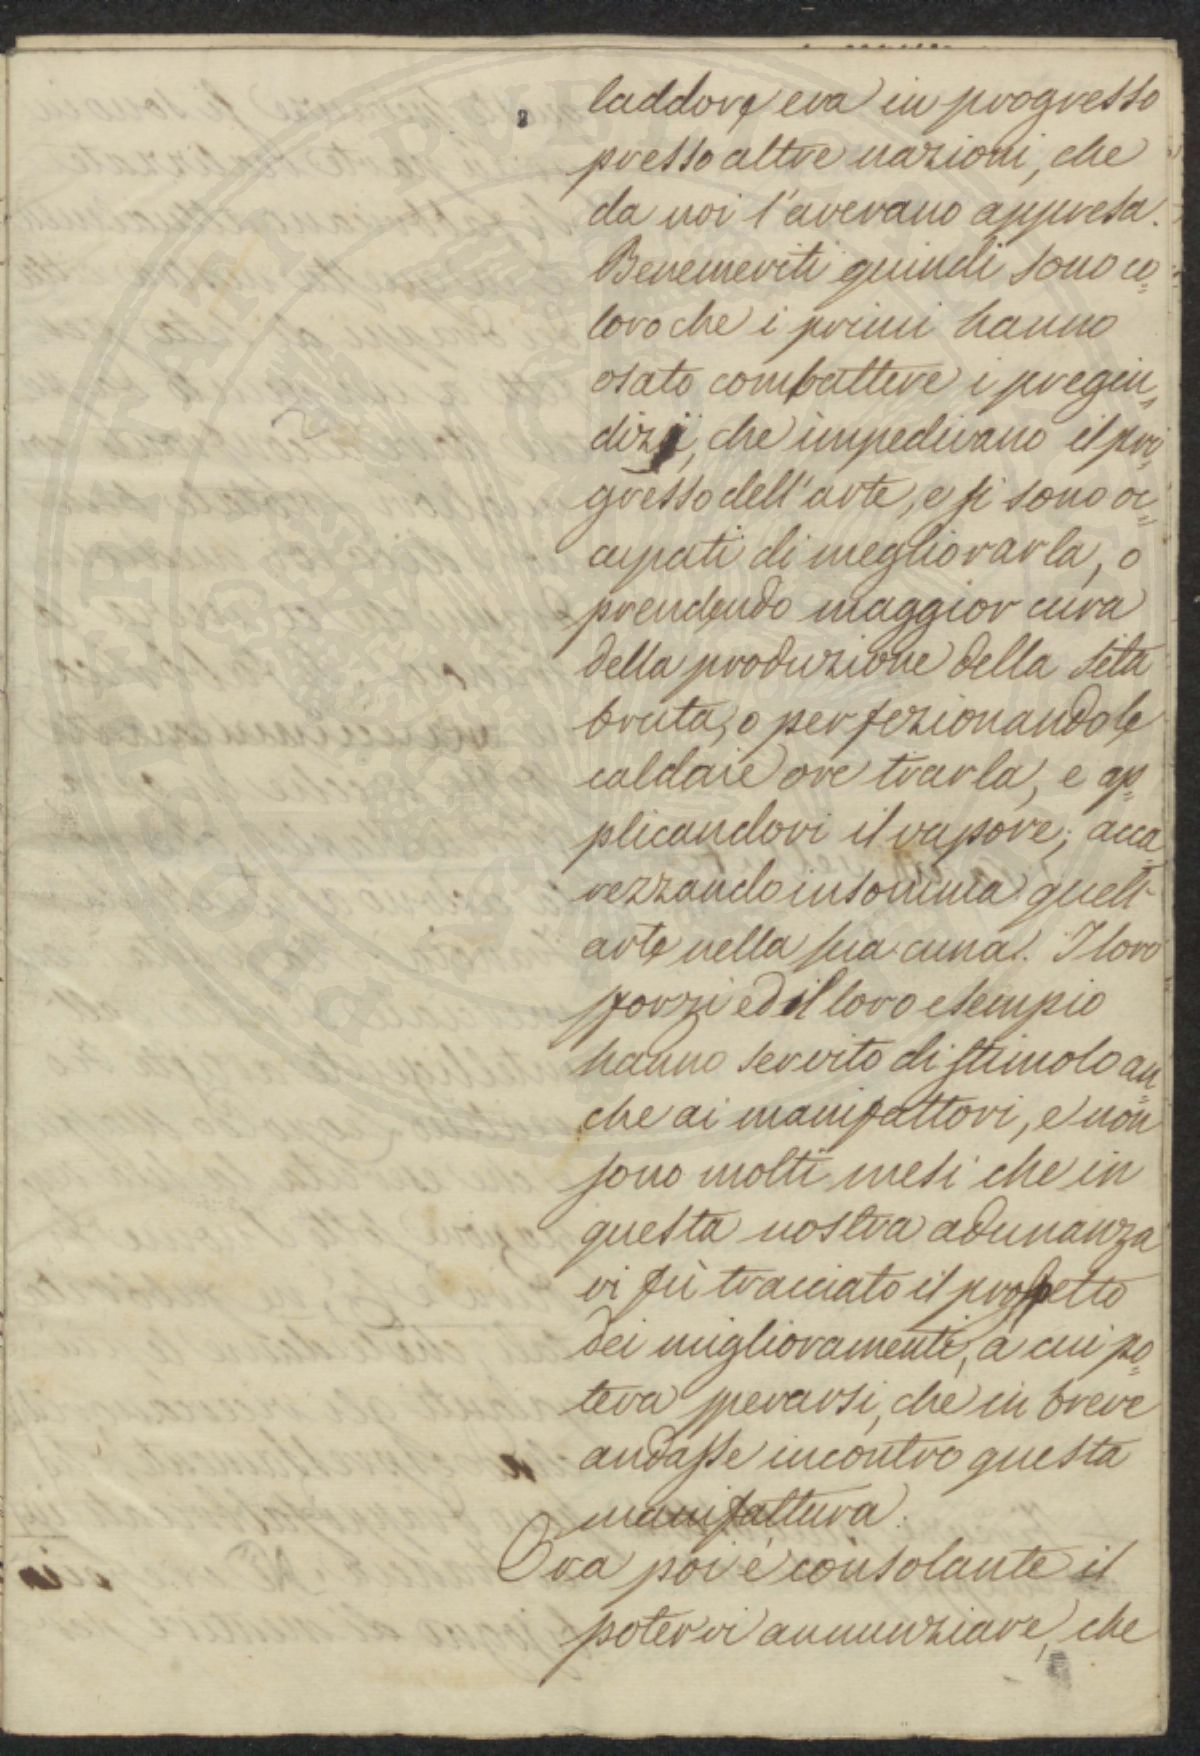 laddove era in progresso
presso altre nazioni, che
da noi l'avevano appresa.
Benemeriti quindi sono co=
loro che i primi hanno
osato combattere i pregiu=
dizj, che impedivano il pro=
gresso dell'arte, e si sono oc=
cupati di megliorarla, o
prendendo maggior cura
della produzione della seta
bruta, o perfezionando le
caldaie ove trarla, e ap=
plicandovi il vapore; acca=
rezzando insomma quell'
arte nella sua cuna. I loro
sforzi ed il loro esempio
hanno servito di stimolo an=
che ai manifattori, e non
sono molti mesi che in
questa nostra adunanza
vi fù tracciato il prospetto
dei miglioramenti, a cui po=
teva sperarsi, che in breve
andasse incontro questa
manifattura.
Ora poi è consolante il
potervi annunziare, che